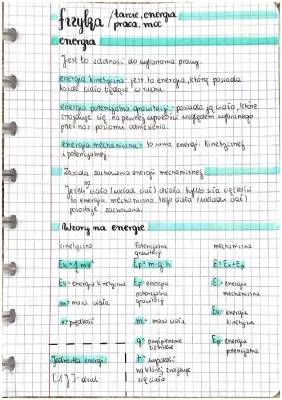 fizyka / tarcie, energia
praca, moc
energia
Jest to zdolność do wykonania pracy.
energia kinetyczna - jest to energia, którą posiada
każde ciało będące w ruchu.
energia potencjalna grawitacji - posiada ją ciało, które
znajduje się na pewnej wysokości względem wybranego
przez nas poziomu odniesienia.
energia mechaniczna - to suma energii kinetycznej
i potencjalnej.
Zasada zachowania energii mechanicznej
Jeżeli na ciało (układ ciał) działa tylko siła ciężkości
to energia mechaniczna tego ciała (układu ciał)
pozostaje zachowana.
Wzory na energię
kinetyczna potencjalna grawitacji mechaniczna
Ek = 1/2 mv² Ep = m·g·h E = Ek + Ep
Ek - energia kinetyczna
m - masa ciała
v - prędkość
Ep - energia
potencjalna
grawitacji
m - masa ciała
g - przyspieszenie
ziemskie
h - wysokość
na której znajduje
się ciało
E - energia
mechaniczna
Ek - energia
kinetyczna
Ep - energia
potencjalna
Jednostka energii
[1J] - dżul